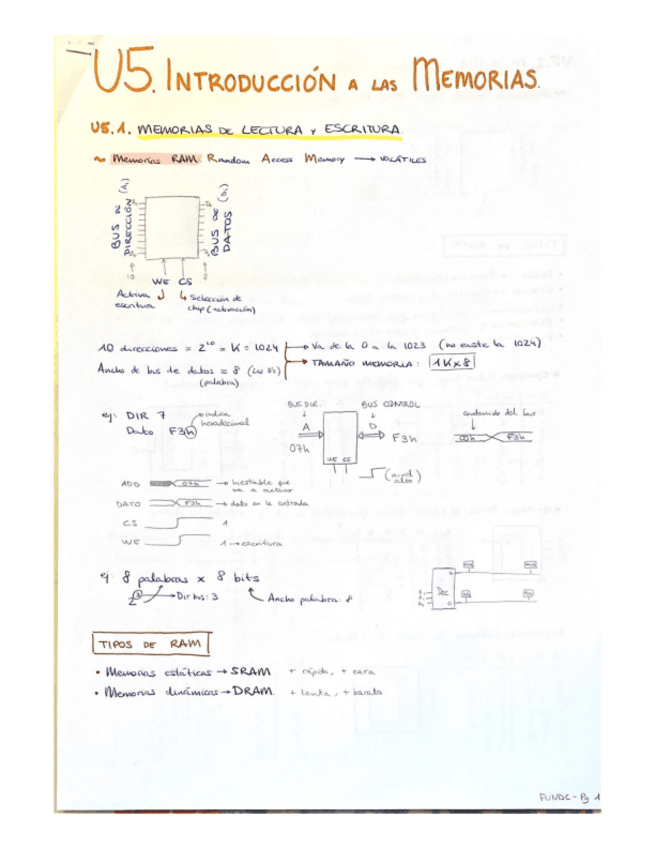 U5. INTRODUCCIÓN A LAS MEMORIAS.
U5.1. MEMORIAS DE LECTURA Y ESCRITURA.
~ Memorias RAM. Random Access Memory → VOLÁTILES
BUS DE DIRECCIÓN
BUS DE DATOS
10
WE CS
Activa escritura
Selección de chip (activación)
10 direcciones = 2^10 = K = 1024 → Va de la 0 a la 1023 (no existe la 1024)
→ TAMAÑO MEMORIA: 1K x 8
Ancho de bus de datos = 8
(palabra)
ej: DIR 7
Dato F3h
indica hexadecimal
BUS DIR. BUS CONTROL
A D
07h F3h
WE CS
(nivel alto)
contenido del bus
00h F3h
ADD 07h → que va a activar
DATO F3h → dato en la entrada
CS 1
WE 1 → escritura
ej: 8 palabras x 8 bits
2^3 → Dir bus: 3 Ancho palabra: 8
Dec
TIPOS DE RAM
• Memorias estáticas → SRAM. + rápida, + cara
• Memorias dinámicas → DRAM. + lenta, + barata
FUNDC - Pg 1